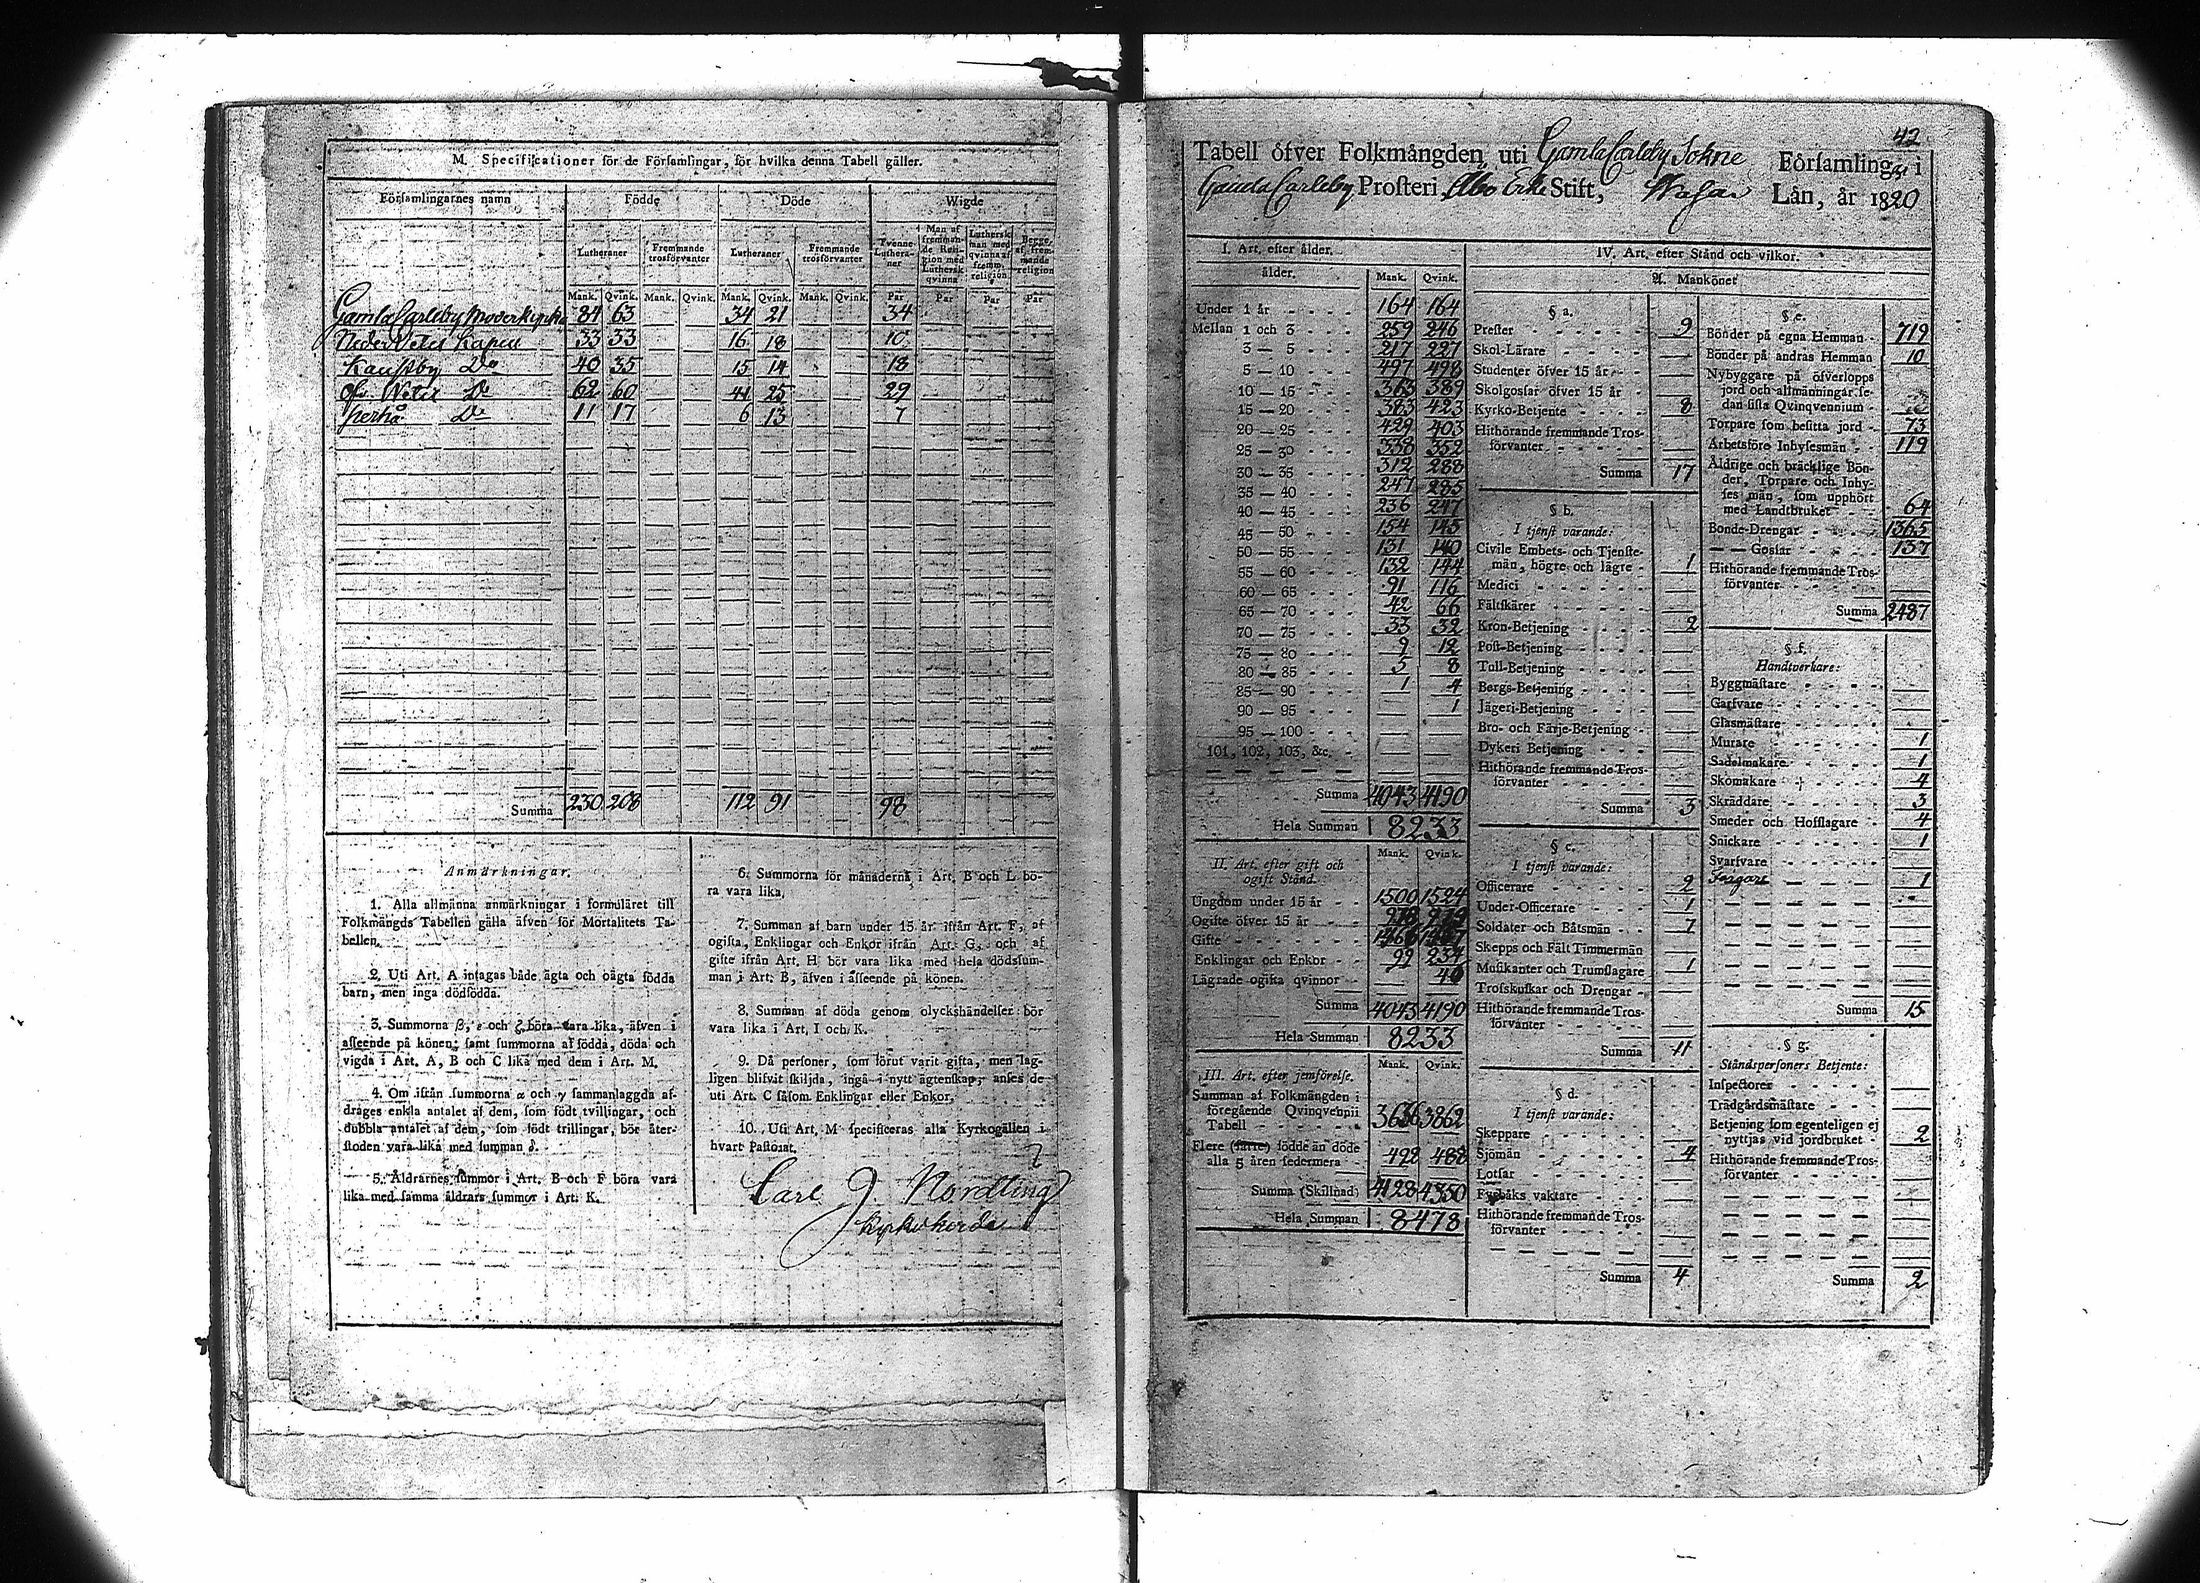 M. Specificationer för de Församlingar, för hvilka denna Tabell gäller.
Församlingarnes namn Födde Döde Wigde
Lutheraner Fremmande trosförvanter Lutheraner Fremmande trosförvanter Tvenne Lutheraner Man af fremmande Religion med Luthersk qvinna Luthersk man med qvinna af fremm. religion Begge af fremmande religion
Mank. Qvink. Mank. Qvink. Mank. Qvink. Mank. Qvink. Par Par Par Par
Gamla Carleby Moderkyrka 84 63 34 21 34
Neder Vetil Capell 33 33 16 18 10
Kaustby Do 40 35 15 14 18
Öf. Vetil Do 62 60 41 25 29
Perho Do 11 17 6 13 7
Summa 230 208 112 91 98
Anmärkningar.
1. Alla allmänna anmärkningar i formuläret till
Folkmängds Tabellen gälla äfven för Mortalitets Ta-
bellen.
2. Uti Art. A intagas både ägta och oägta födda
barn, men inga dödfödda.
3. Summorna β, ε och ζ böra vara lika, äfven i
afseende på könen; samt summorna af födda, döda och
vigda i Art. A, B och C lika med dem i Art. M.
4. Om ifrån summorna α och γ sammanlaggda af-
drages enkla antalet af dem, som födt tvillingar, och
dubbla antalet af dem, som födt trillingar, bör åter-
stoden vara lika med summan δ.
5. Åldrarnes summor i Art. B och F böra vara
lika med samma åldrars summor i Art. K.
6. Summorna för månaderna i Art. B och L bö-
ra vara lika.
7. Summan af barn under 15 år ifrån Art. F, af
ogifta, Enklingar och Enkor ifrån Art. G, och af
gifte ifrån Art. H bör vara lika med hela dödssum-
man i Art. B, äfven i afseende på könen.
8. Summan af döda genom olyckshändelser bör
vara lika i Art. I och K.
9. Då personer, som förut varit gifta, men lag-
ligen blifvit skiljda, ingå i nytt ägtenskap, anses de
uti Art. C såsom Enklingar eller Enkor.
10. Uti Art. M specificeras alla Kyrkogällen i
hvart Pastorat.
Carl J. Nordling
Kyrkoherde
42
Tabell öfver Folkmängden uti Gamla Carleby Sokne Församlingar i
Gamla Carleby Prosteri Åbo Erke Stift, Wasa Län, år 1820
I. Art. efter ålder.
ålder. Mank. Qvink.
Under 1 år 164 164
Mellan 1 och 3 259 246
3 — 5 217 227
5 — 10 497 498
10 — 15 363 389
15 — 20 383 423
20 — 25 429 403
25 — 30 338 352
30 — 35 312 288
35 — 40 247 285
40 — 45 236 247
45 — 50 154 145
50 — 55 131 140
55 — 60 132 144
60 — 65 91 116
65 — 70 42 66
70 — 75 33 32
75 — 80 9 12
80 — 85 5 8
85 — 90 1 4
90 — 95 1
95 — 100
101, 102, 103, &c.
Summa 4043 4190
Hela Summan 8233
II. Art. efter gift och ogift Stånd. Mank. Qvink.
Ungdom under 15 år 1500 1524
Ogifte öfver 15 år
Gifte
Enklingar och Enkor 99 234
Lägrade ogifta qvinnor 40
Summa 4043 4190
Hela Summan 8233
III. Art. efter jemförelse. Mank. Qvink.
Summan af Folkmängden i
föregående Qvinqvennii
Tabell 3636 3862
Flere födde än döde
alla 5 åren sedermera 492 488
Summa (Skillnad) 4128 4350
Hela Summan 8478
IV. Art. efter Stånd och vilkor.
A. Mankönet
§ a.
Prester 9
Skol-Lärare
Studenter öfver 15 år
Skolgossar öfver 15 år
Kyrko-Betjente 8
Hithörande fremmande Tros-
förvanter
Summa 17
§ b.
I tjenst varande:
Civile Embets- och Tjenste-
män, högre och lägre 1
Medici
Fältskärer
Kron-Betjening 2
Post-Betjening
Tull-Betjening
Bergs-Betjening
Jägeri-Betjening
Bro- och Färje-Betjening
Dykeri Betjening
Hithörande fremmande Tros-
förvanter
Summa 3
§ c.
I tjenst varande:
Officerare 2
Under-Officerare 1
Soldater och Båtsmän 7
Skepps och Fält Timmermän
Musikanter och Trumslagare 1
Trosskuskar och Drengar
Hithörande fremmande Tros-
förvanter
Summa 11
§ d.
I tjenst varande:
Skeppare
Sjömän 4
Lotsar
Fyrbåks vaktare
Hithörande fremmande Tros-
förvanter
Summa 4
§ e.
Bönder på egna Hemman 719
Bönder på andras Hemman 10
Nybyggare på öfverlopps
jord och allmänningar se-
dan sista Qvinqvennium
Torpare som besitta jord 73
Arbetsföre Inhysesmän 119
Åldrige och bräcklige Bön-
der, Torpare och Inhy-
ses män, som upphört
med Landtbruket 64
Bonde-Drengar 1365
— — Gossar 137
Hithörande fremmande Tros-
förvanter
Summa 2487
§ f.
Handtverkare:
Byggmästare
Garfvare
Glasmästare
Murare 1
Sadelmakare 1
Skomakare 4
Skräddare 3
Smeder och Hofslagare 4
Snickare 1
Svarfvare
Färgare 1
Summa 15
§ g.
Ståndspersoners Betjente:
Inspectorer
Trädgårdsmästare
Betjening som egenteligen ej
nyttjas vid jordbruket 2
Hithörande fremmande Tros-
förvanter
Summa 2